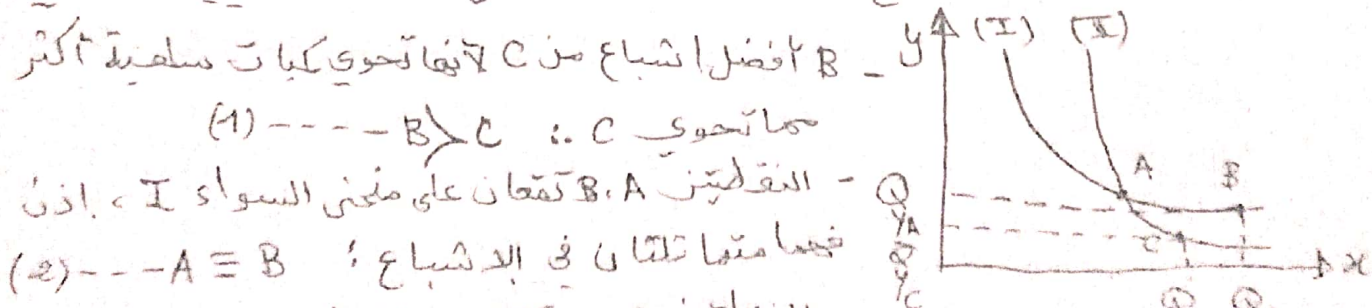 - B أفضل اشباع من C لأنها تحوي كميات سلعية أكثر
مما تحوي C : B≻C ----(1)
- النقطتين B، A تقعان على منحنى السواء I، اذن
فهما متماثلتان في الاشباع : A ≡ B ---(2)
y (I) (II)
A B
Q
yA
C
Q
yC
x
Q Q